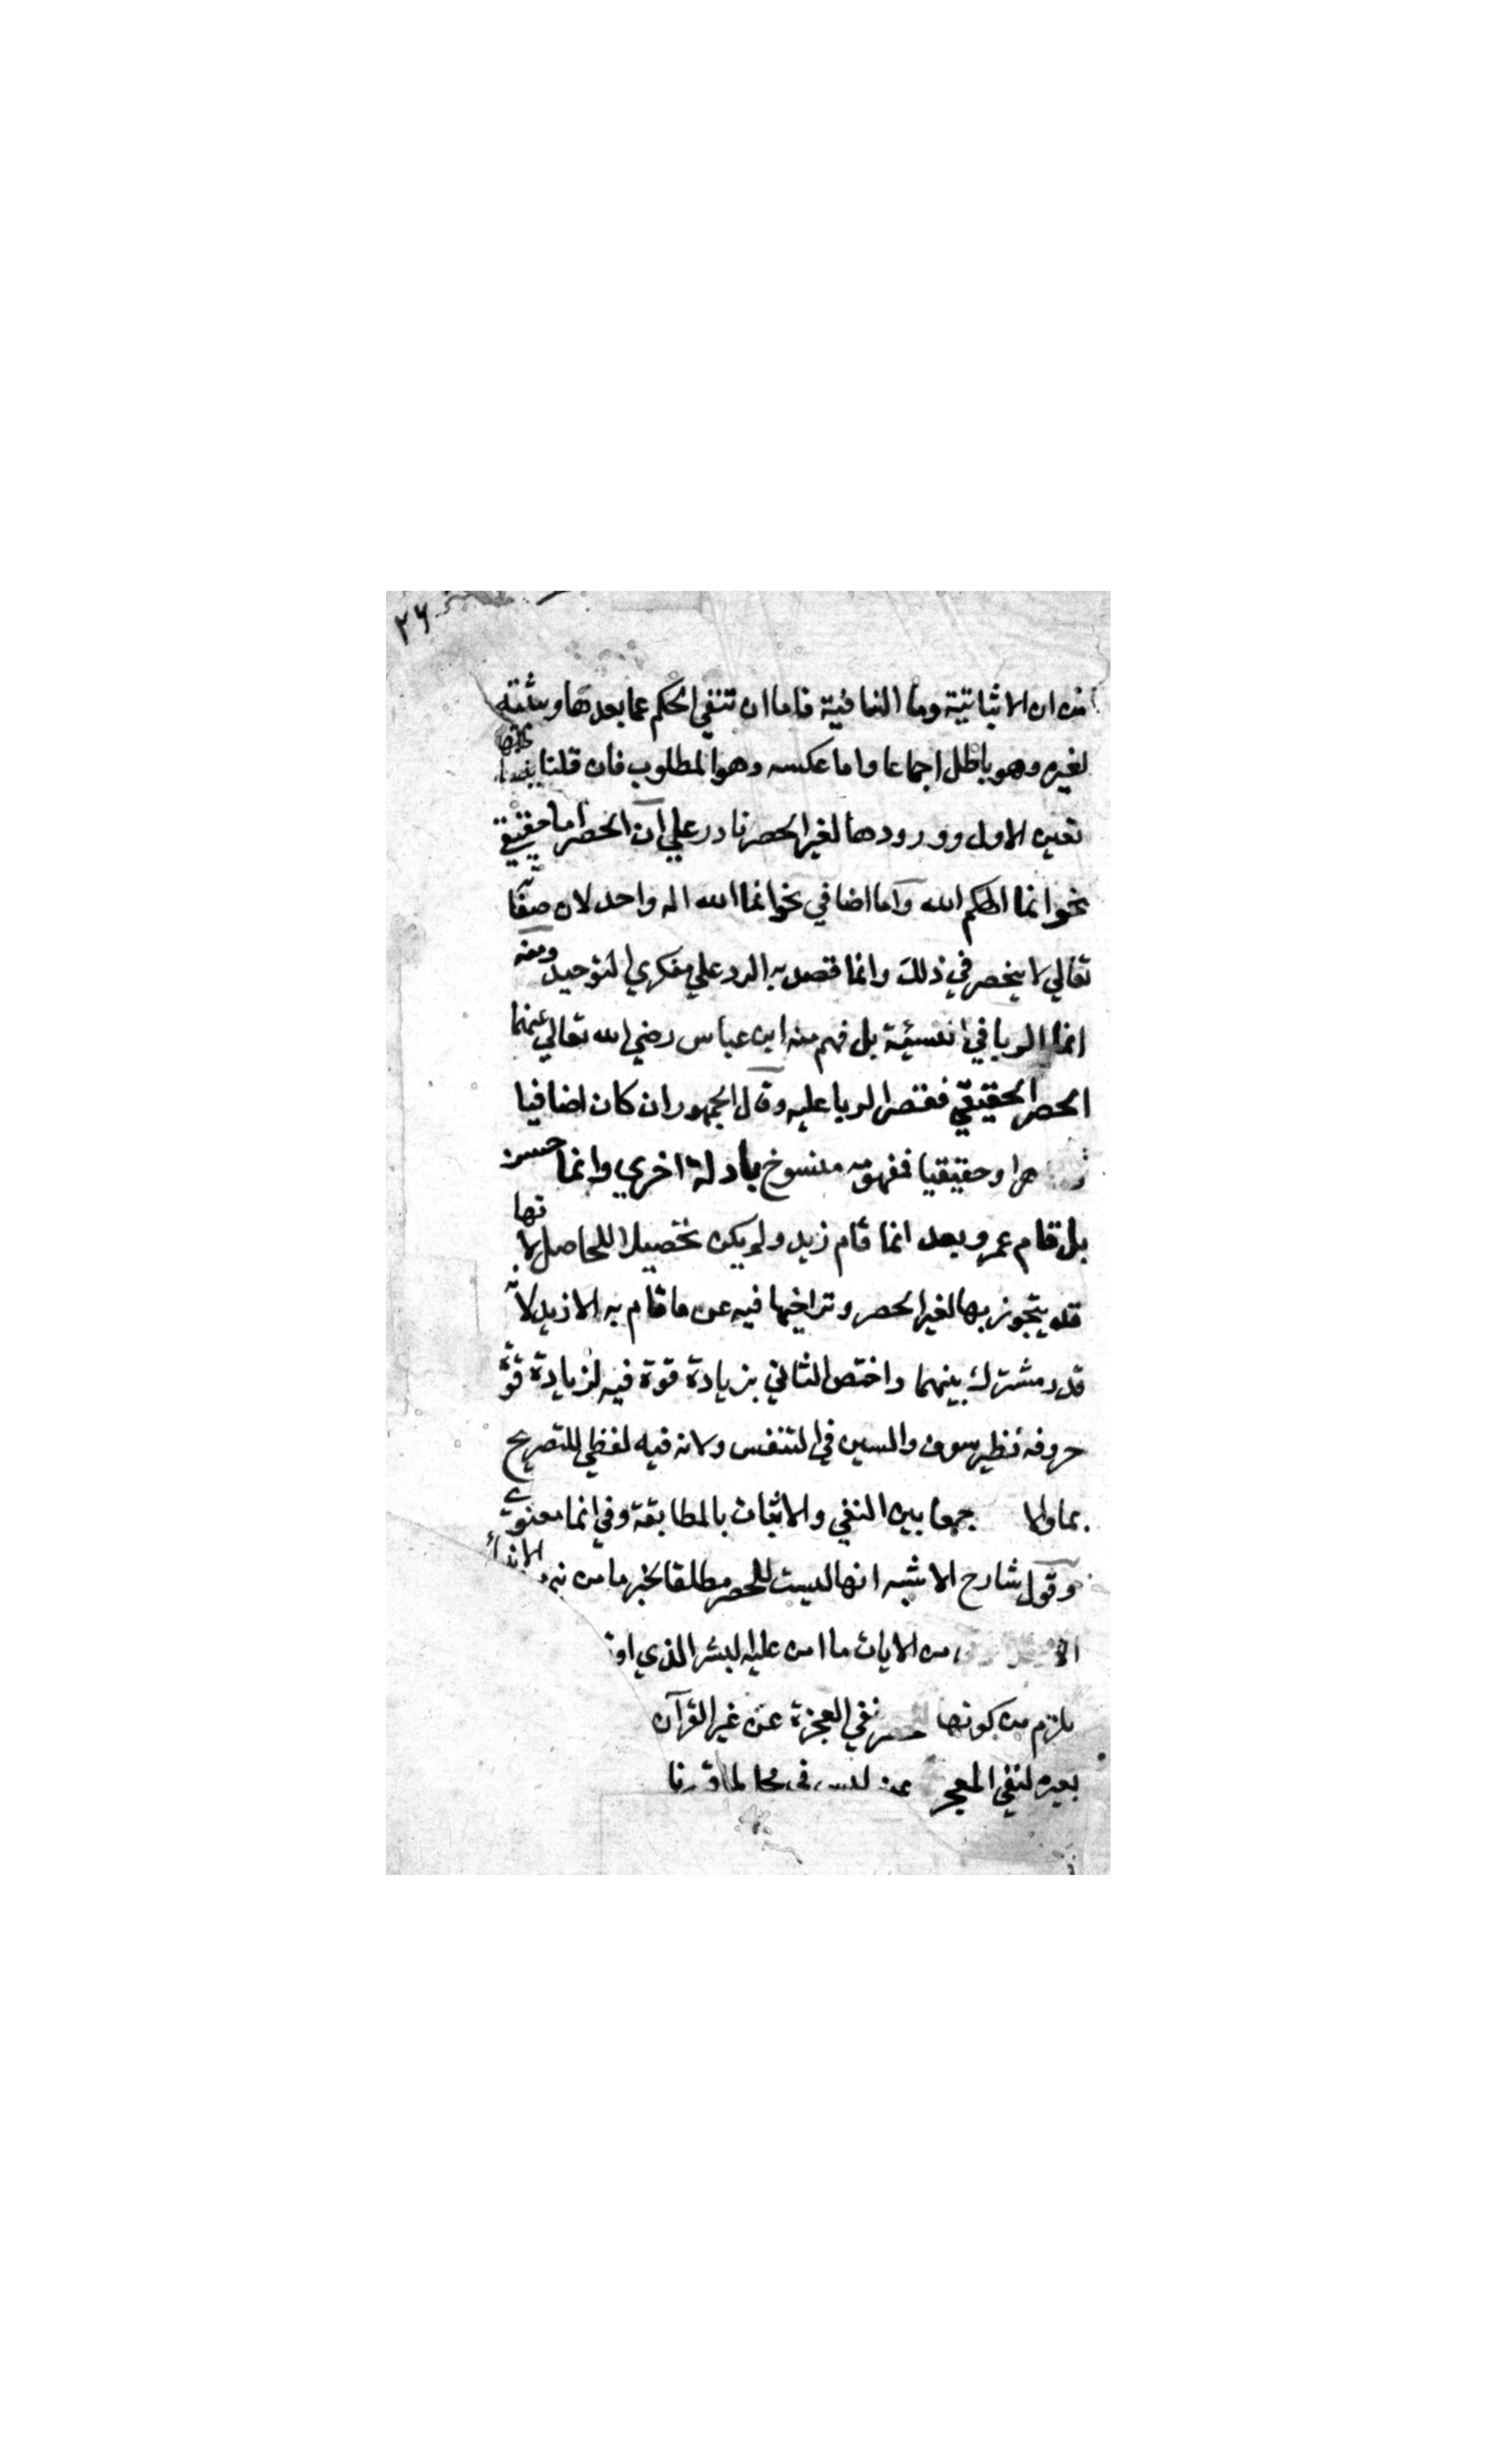 ٢٦
من ان الاثباتية وما النافية فاما ان تنفي الحكم عما بعدها ويثبته
لغيره وهو باطل اجماعا واما عكسه وهو المطلوب فان قلنا
تعين الاول وورودها لغير الحصر نادر علي ان الحصر اما حقيقي
نحو انما الهكم الله واما اضافي نحو انما الله اله واحد لان صفاته
تعالي لا ينحصر في ذلك وانما قصد به الرد علي منكري التوحيد ومنه
انما الربا في النسيئة بل فهم منه ابن عباس رضي الله تعالي عنهما
الحصر الحقيقي فقصر الربا عليه وقال الجمهور ان كان اضافيا
او حقيقيا فمفهومه منسوخ بادلة اخري وانما حسن
بل قام عمرو بعد انما قام زيد ولم يكن تحصيلا للحاصل لانها
قد يتجوز بها لغير الحصر وتراخيها فيه عن ما قام به الا زيد لانه
قدر مشترك بينهما واختص الثاني بزيادة قوة فيه لزيادة قوة
حروفه نظير سوف والسين في التنفس ولانه فيه لفظي للتصريح
بما والا جمعا بين النفي والاثبات بالمطابقة وفي انما معنوي
وقول شارح الاشبه انها ليست للحصر مطلقا لخبر ما من نبي الانبياء
الا من الايات ما امن عليه البشر الذي
يلزم من كونها نفي المعجزة عن غير القرآن
بعده لنفي المعجز عن